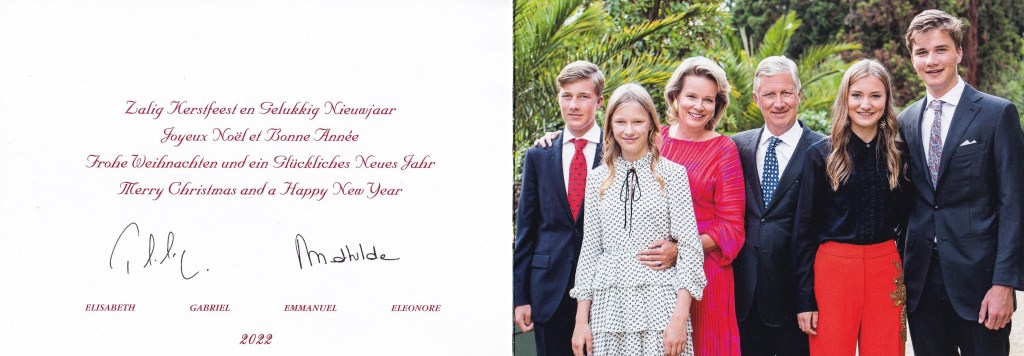 Zalig Kerstfeest en Gelukkig Nieuwjaar
Joyeux Noël et Bonne Année
Frohe Weihnachten und ein Glückliches Neues Jahr
Merry Christmas and a Happy New Year
Mathilde
ELISABETH GABRIEL EMMANUEL ELEONORE
2022